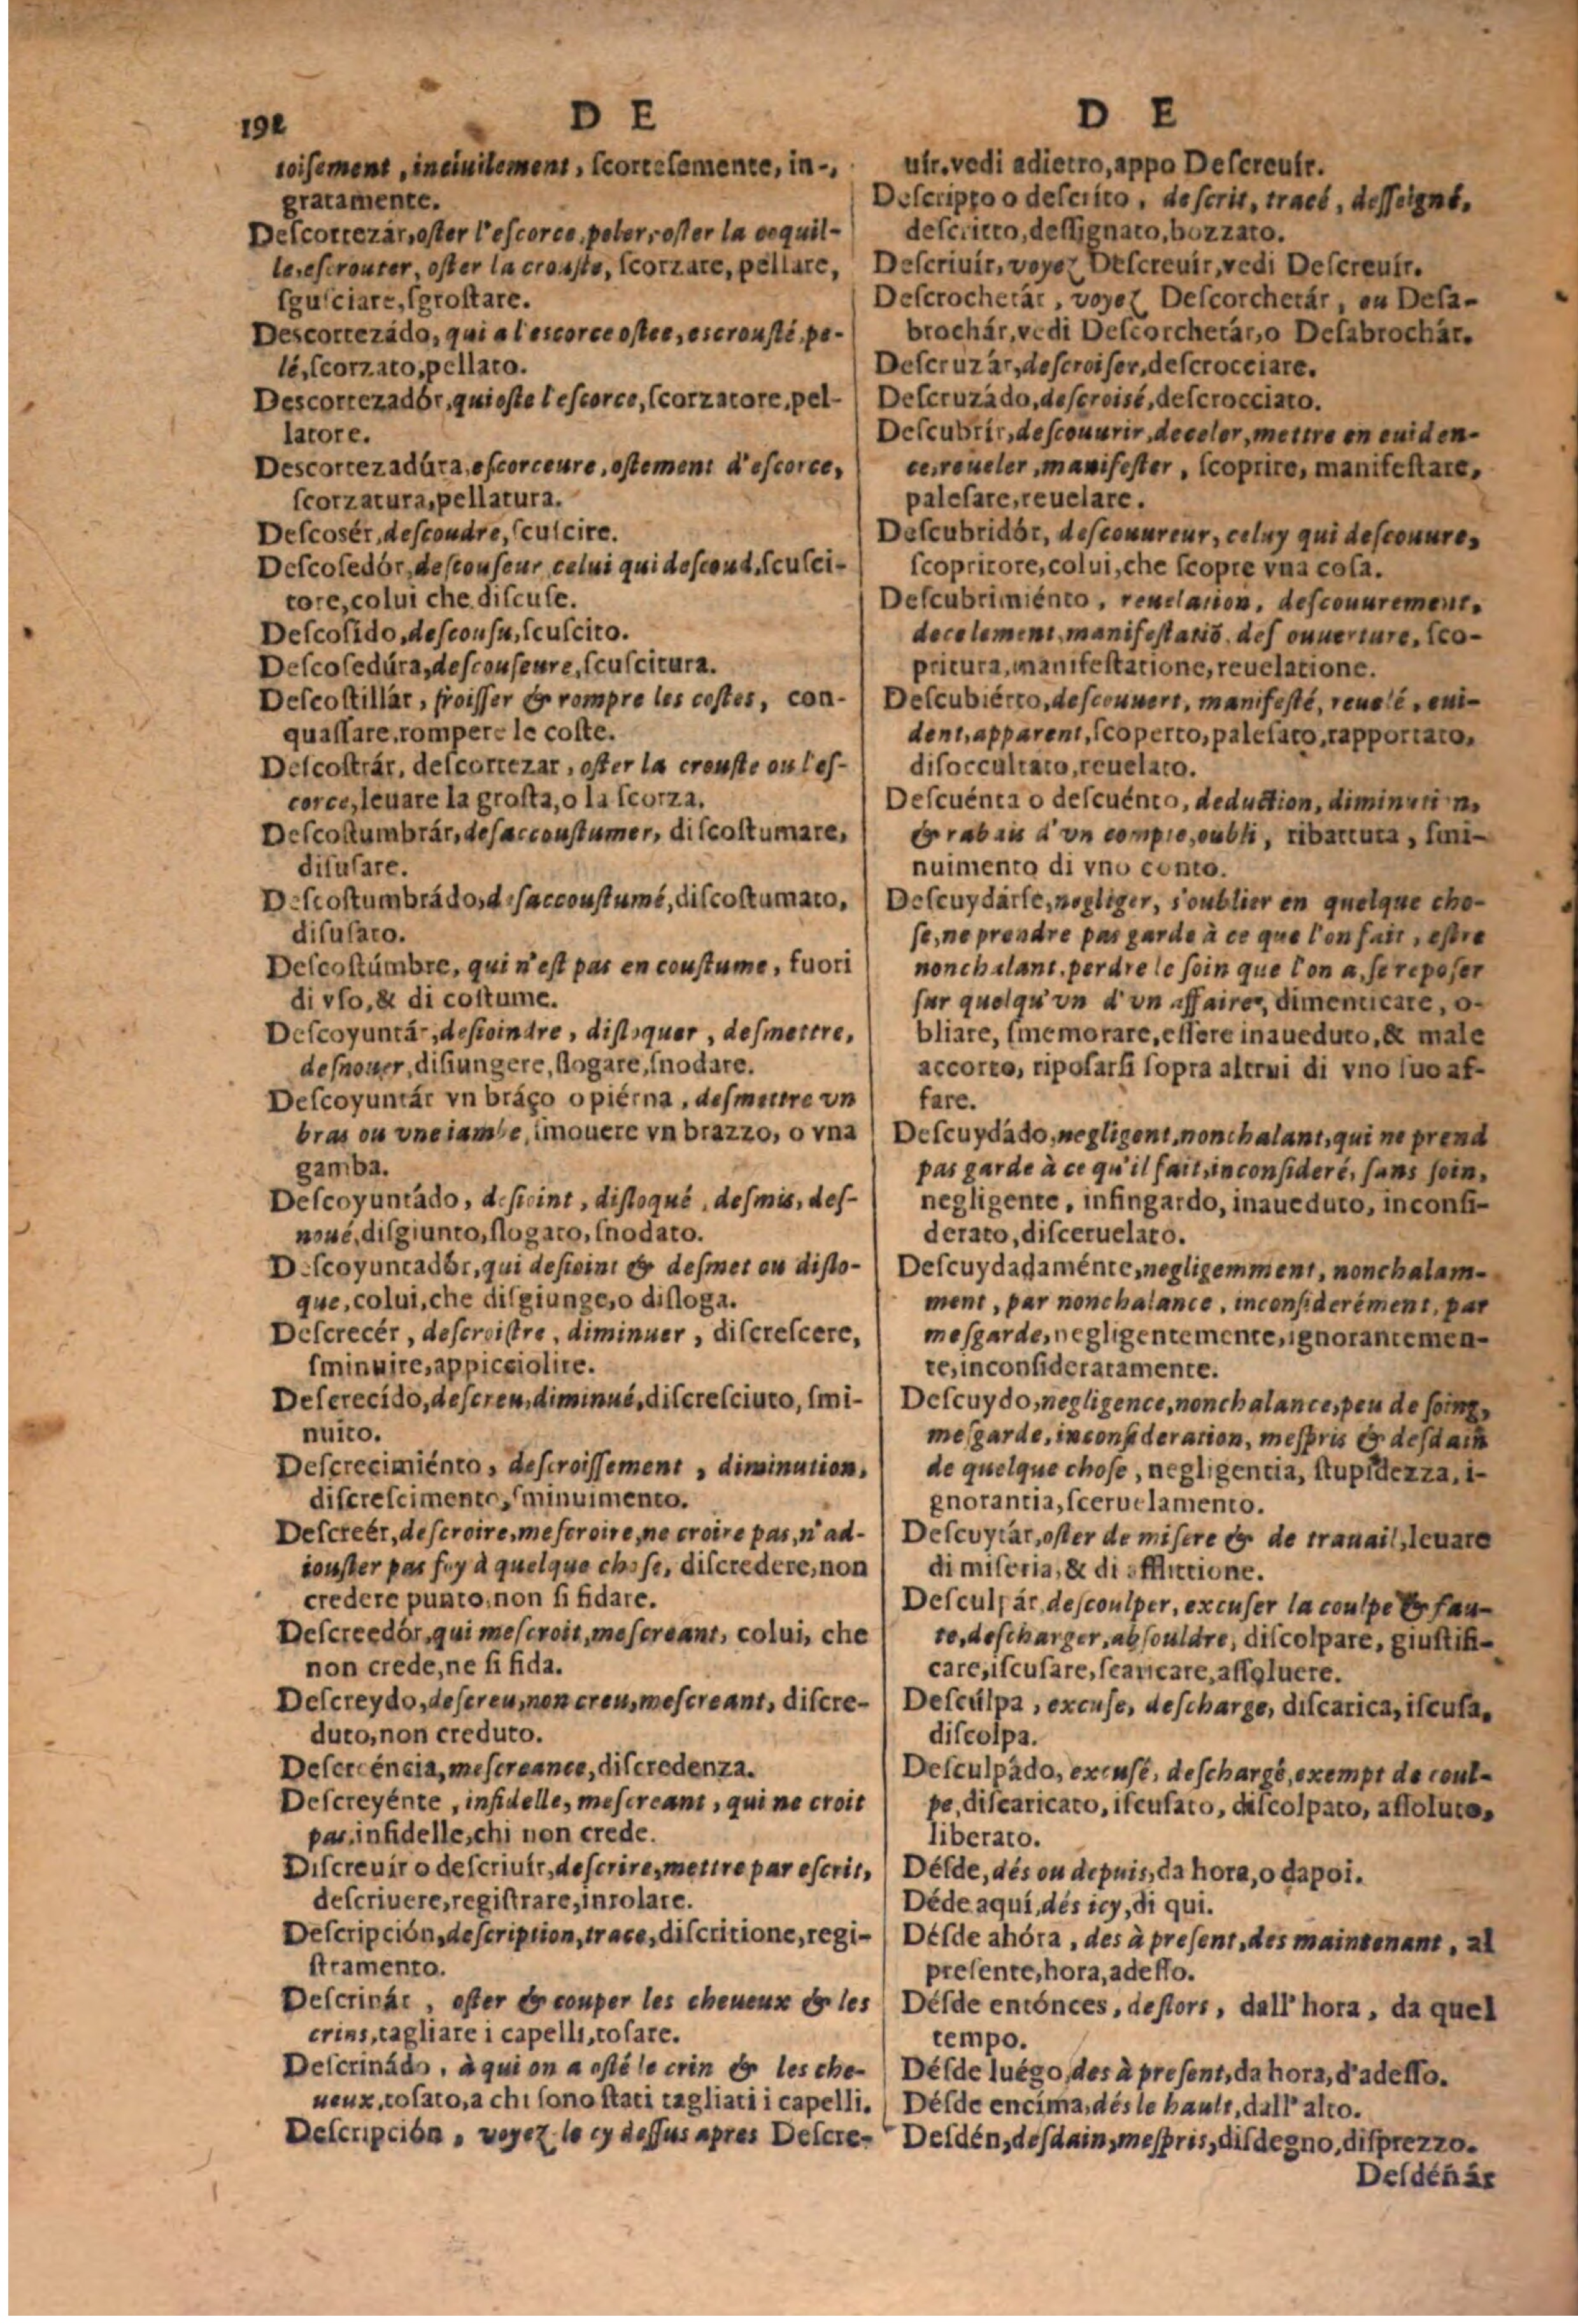 192
D E
toiſement, inciuilement, ſcorteſemente, in-
gratamente.
Deſcortezár, oſter l'eſcorce, peler, oſter la coquil-
le, eſcrouter, oſter la crouſte, ſcorzare, pellare,
ſguſciare, ſgroſtare.
Descortezádo, qui a l'escorce oſtee, escrouſté, pe-
lé, ſcorzato, pellato.
Descortezadór, qui oſte l'eſcorce, ſcorzatore, pel-
latore.
Descortezadúra, eſcorceure, oſtement d'eſcorce,
ſcorzatura, pellatura.
Deſcosér, deſcoudre, ſcuſcire.
Deſcoſedór, deſcouſeur, celui qui deſcoud, ſcuſci-
tore, colui che diſcuſe.
Deſcoſido, deſcouſu, ſcuſcito.
Deſcoſedúra, deſcouſeure, ſcuſcitura.
Deſcoſtillár, froiſſer & rompre les coſtes, con-
quaſſare, rompere le coſte.
Deſcoſtrár, deſcortezar, oſter la crouſte ou l'eſ-
corce, leuare la groſta, o la ſcorza.
Deſcoſtumbrár, deſaccouſtumer, diſcoſtumare,
diſuſare.
Deſcoſtumbrádo, deſaccouſtumé, diſcoſtumato,
diſuſato.
Deſcoſtúmbre, qui n'eſt pas en couſtume, fuori
di vſo, & di coſtume.
Deſcoyuntár, deſioindre, diſloquer, deſmettre,
deſnouer, diſiungere, ſlogare, ſnodare.
Deſcoyuntár vn bráço o piérna, deſmettre vn
bras ou vne iambe, ſmouere vn brazzo, o vna
gamba.
Deſcoyuntádo, deſioint, diſloqué, deſmis, deſ-
noué, diſgiunto, ſlogato, ſnodato.
Deſcoyuntadór, qui deſioint & deſmet ou diſlo-
que, colui, che diſgiunge, o diſloga.
Deſcrecér, deſcroiſtre, diminuer, diſcreſcere,
ſminuire, appicciolire.
Deſcrecído, deſcreu, diminué, diſcreſciuto, ſmi-
nuito.
Deſcrecimiénto, deſcroiſſement, diminution,
diſcreſcimento, ſminuimento.
Deſcreér, deſcroire, meſcroire, ne croire pas, n'ad-
iouſter pas foy à quelque choſe, diſcredere, non
credere punto, non ſi fidare.
Deſcreedór, qui meſcroit, meſcreant, colui, che
non crede, ne ſi fida.
Deſcreydo, deſcreu, non creu, meſcreant, diſcre-
duto, non creduto.
Deſcreéncia, meſcreance, diſcredenza.
Deſcreyénte, infidelle, meſcreant, qui ne croit
pas, infidelle, chi non crede.
Diſcreuír o deſcriuír, deſcrire, mettre par eſcrit,
deſcriuere, regiſtrare, inrolare.
Deſcripción, deſcription, trace, diſcritione, regi-
ſtramento.
Deſcrinár, oſter & couper les cheueux & les
crins, tagliare i capelli, toſare.
Deſcrinádo, à qui on a oſté le crin & les che-
ueux, toſato, a chi ſono ſtati tagliati i capelli.
Deſcripción, voyez le cy deſſus apres Deſcre-
D E
uír. vedi adietro, appo Deſcreuír.
Deſcripto o deſcríto, deſcrit, tracé, deſſeigné,
deſcritto, deſſignato, bozzato.
Deſcriuír, voyez Deſcreuír, vedi Deſcreuír.
Deſcrochetár, voyez Deſcorchetár, ou Deſa-
brochár, vedi Deſcorchetár, o Deſabrochár.
Deſcruzár, deſcroiſer, deſcrocciare.
Deſcruzádo, deſcroisé, deſcrocciato.
Deſcubrír, deſcouurir, deceler, mettre en euiden-
ce, reueler, manifeſter, ſcoprire, manifeſtare,
paleſare, reuelare.
Deſcubridór, deſcouureur, celuy qui deſcouure,
ſcopritore, colui, che ſcopre vna coſa.
Deſcubrimiénto, reuelation, deſcouurement,
decelement, manifeſtatiõ, deſouuerture, ſco-
pritura, manifeſtatione, reuelatione.
Deſcubiérto, deſcouuert, manifeſté, reuelé, eui-
dent, apparent, ſcoperto, paleſato, rapportato,
diſoccultato, reuelato.
Deſcuénta o deſcuénto, deduction, diminution,
& rabais d'vn compte, oubli, ribattuta, ſmi-
nuimento di vno conto.
Deſcuydárſe, negliger, s'oublier en quelque cho-
ſe, ne prendre pas garde à ce que l'on fait, eſtre
nonchalant, perdre le ſoin que l'on a, ſe repoſer
ſur quelqu'vn d'vn affaire, dimenticare, o-
bliare, ſmemorare, eſſere inaueduto, & male
accorto, ripoſarſi ſopra altrui di vno ſuo af-
fare.
Deſcuydádo, negligent, nonchalant, qui ne prend
pas garde à ce qu'il fait, inconſideré, ſans ſoin,
negligente, infingardo, inaueduto, inconſi-
derato, diſceruelato.
Deſcuydadaménte, negligemment, nonchalam-
ment, par nonchalance, inconſiderément, par
meſgarde, negligentemente, ignorantemen-
te, inconſideratamente.
Deſcuydo, negligence, nonchalance, peu de ſoing,
meſgarde, inconſideration, meſpris & deſdain
de quelque choſe, negligentia, ſtupidezza, i-
gnorantia, ſceruelamento.
Deſcuytár, oſter de miſere & de trauail, leuare
di miſeria, & di afflittione.
Deſculpár, deſcoulper, excuſer la coulpe & fau-
te, deſcharger, abſouldre, diſcolpare, giuſtifi-
care, iſcuſare, ſcaricare, aſſoluere.
Deſcúlpa, excuſe, deſcharge, diſcarica, iſcuſa,
diſcolpa.
Deſculpádo, excuſé, deſchargé, exempt de coul-
pe, diſcaricato, iſcuſato, diſcolpato, aſſoluto,
liberato.
Déſde, dés ou depuis, da hora, o dapoi.
Déde aquí, dés icy, di qui.
Déſde ahóra, des à preſent, des maintenant, al
preſente, hora, adeſſo.
Déſde entónces, deſlors, dall' hora, da quel
tempo.
Déſde luégo, des à preſent, da hora, d'adeſſo.
Déſde encíma, dés le hault, dall' alto.
Deſdén, deſdain, meſpris, diſdegno, diſprezzo.
Deſdéñár